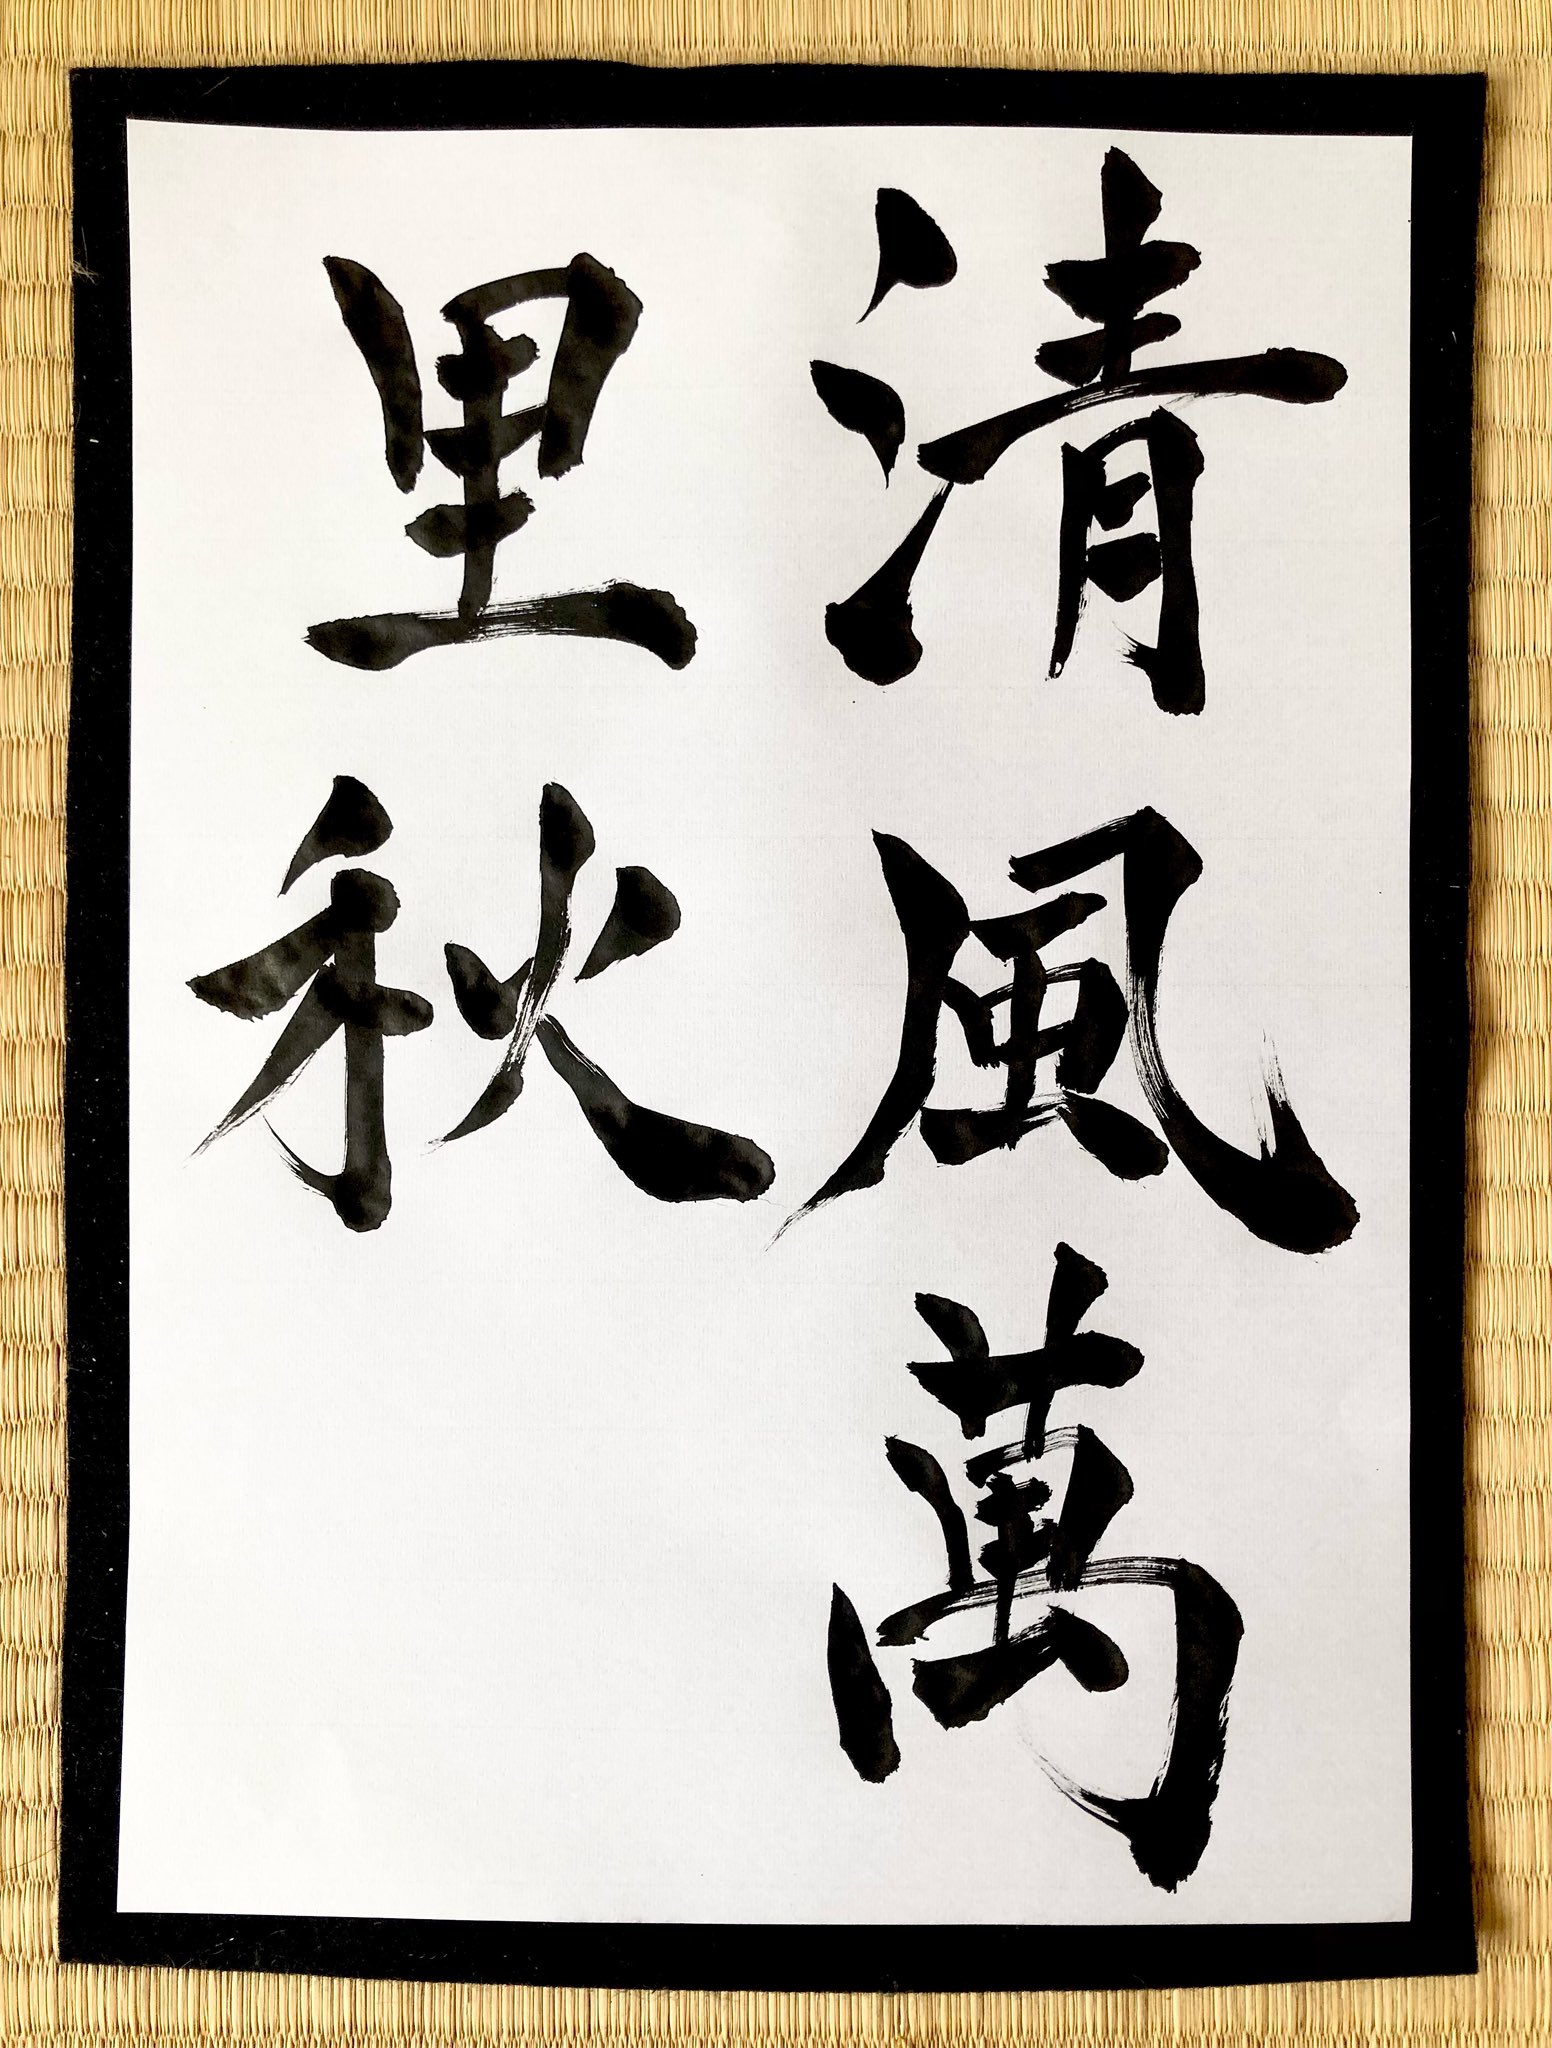 清風萬
里秋